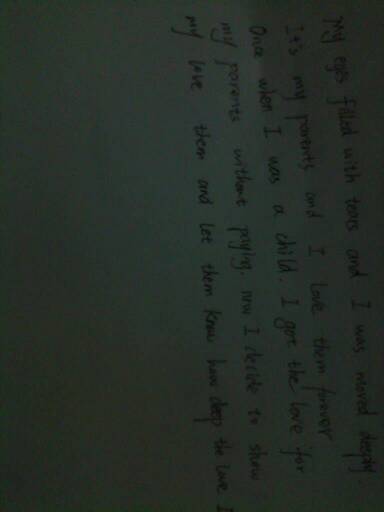 My eyes filled with tears and I was moved deeply.
It's my parents and I love them forever
Once when I was a child. I got the love for
my parents without paying. now I decide to show
my love them and let them know how deep the love I